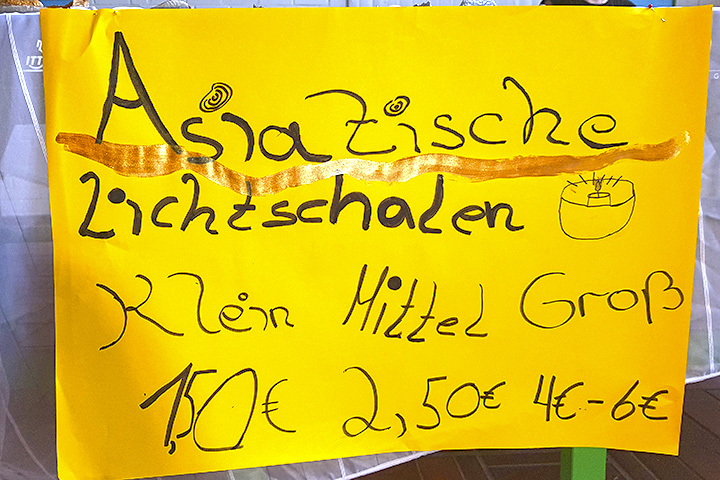 Asiatische
Lichtschalen
Klein Mittel Groß
1,50€ 2,50€ 4€-6€